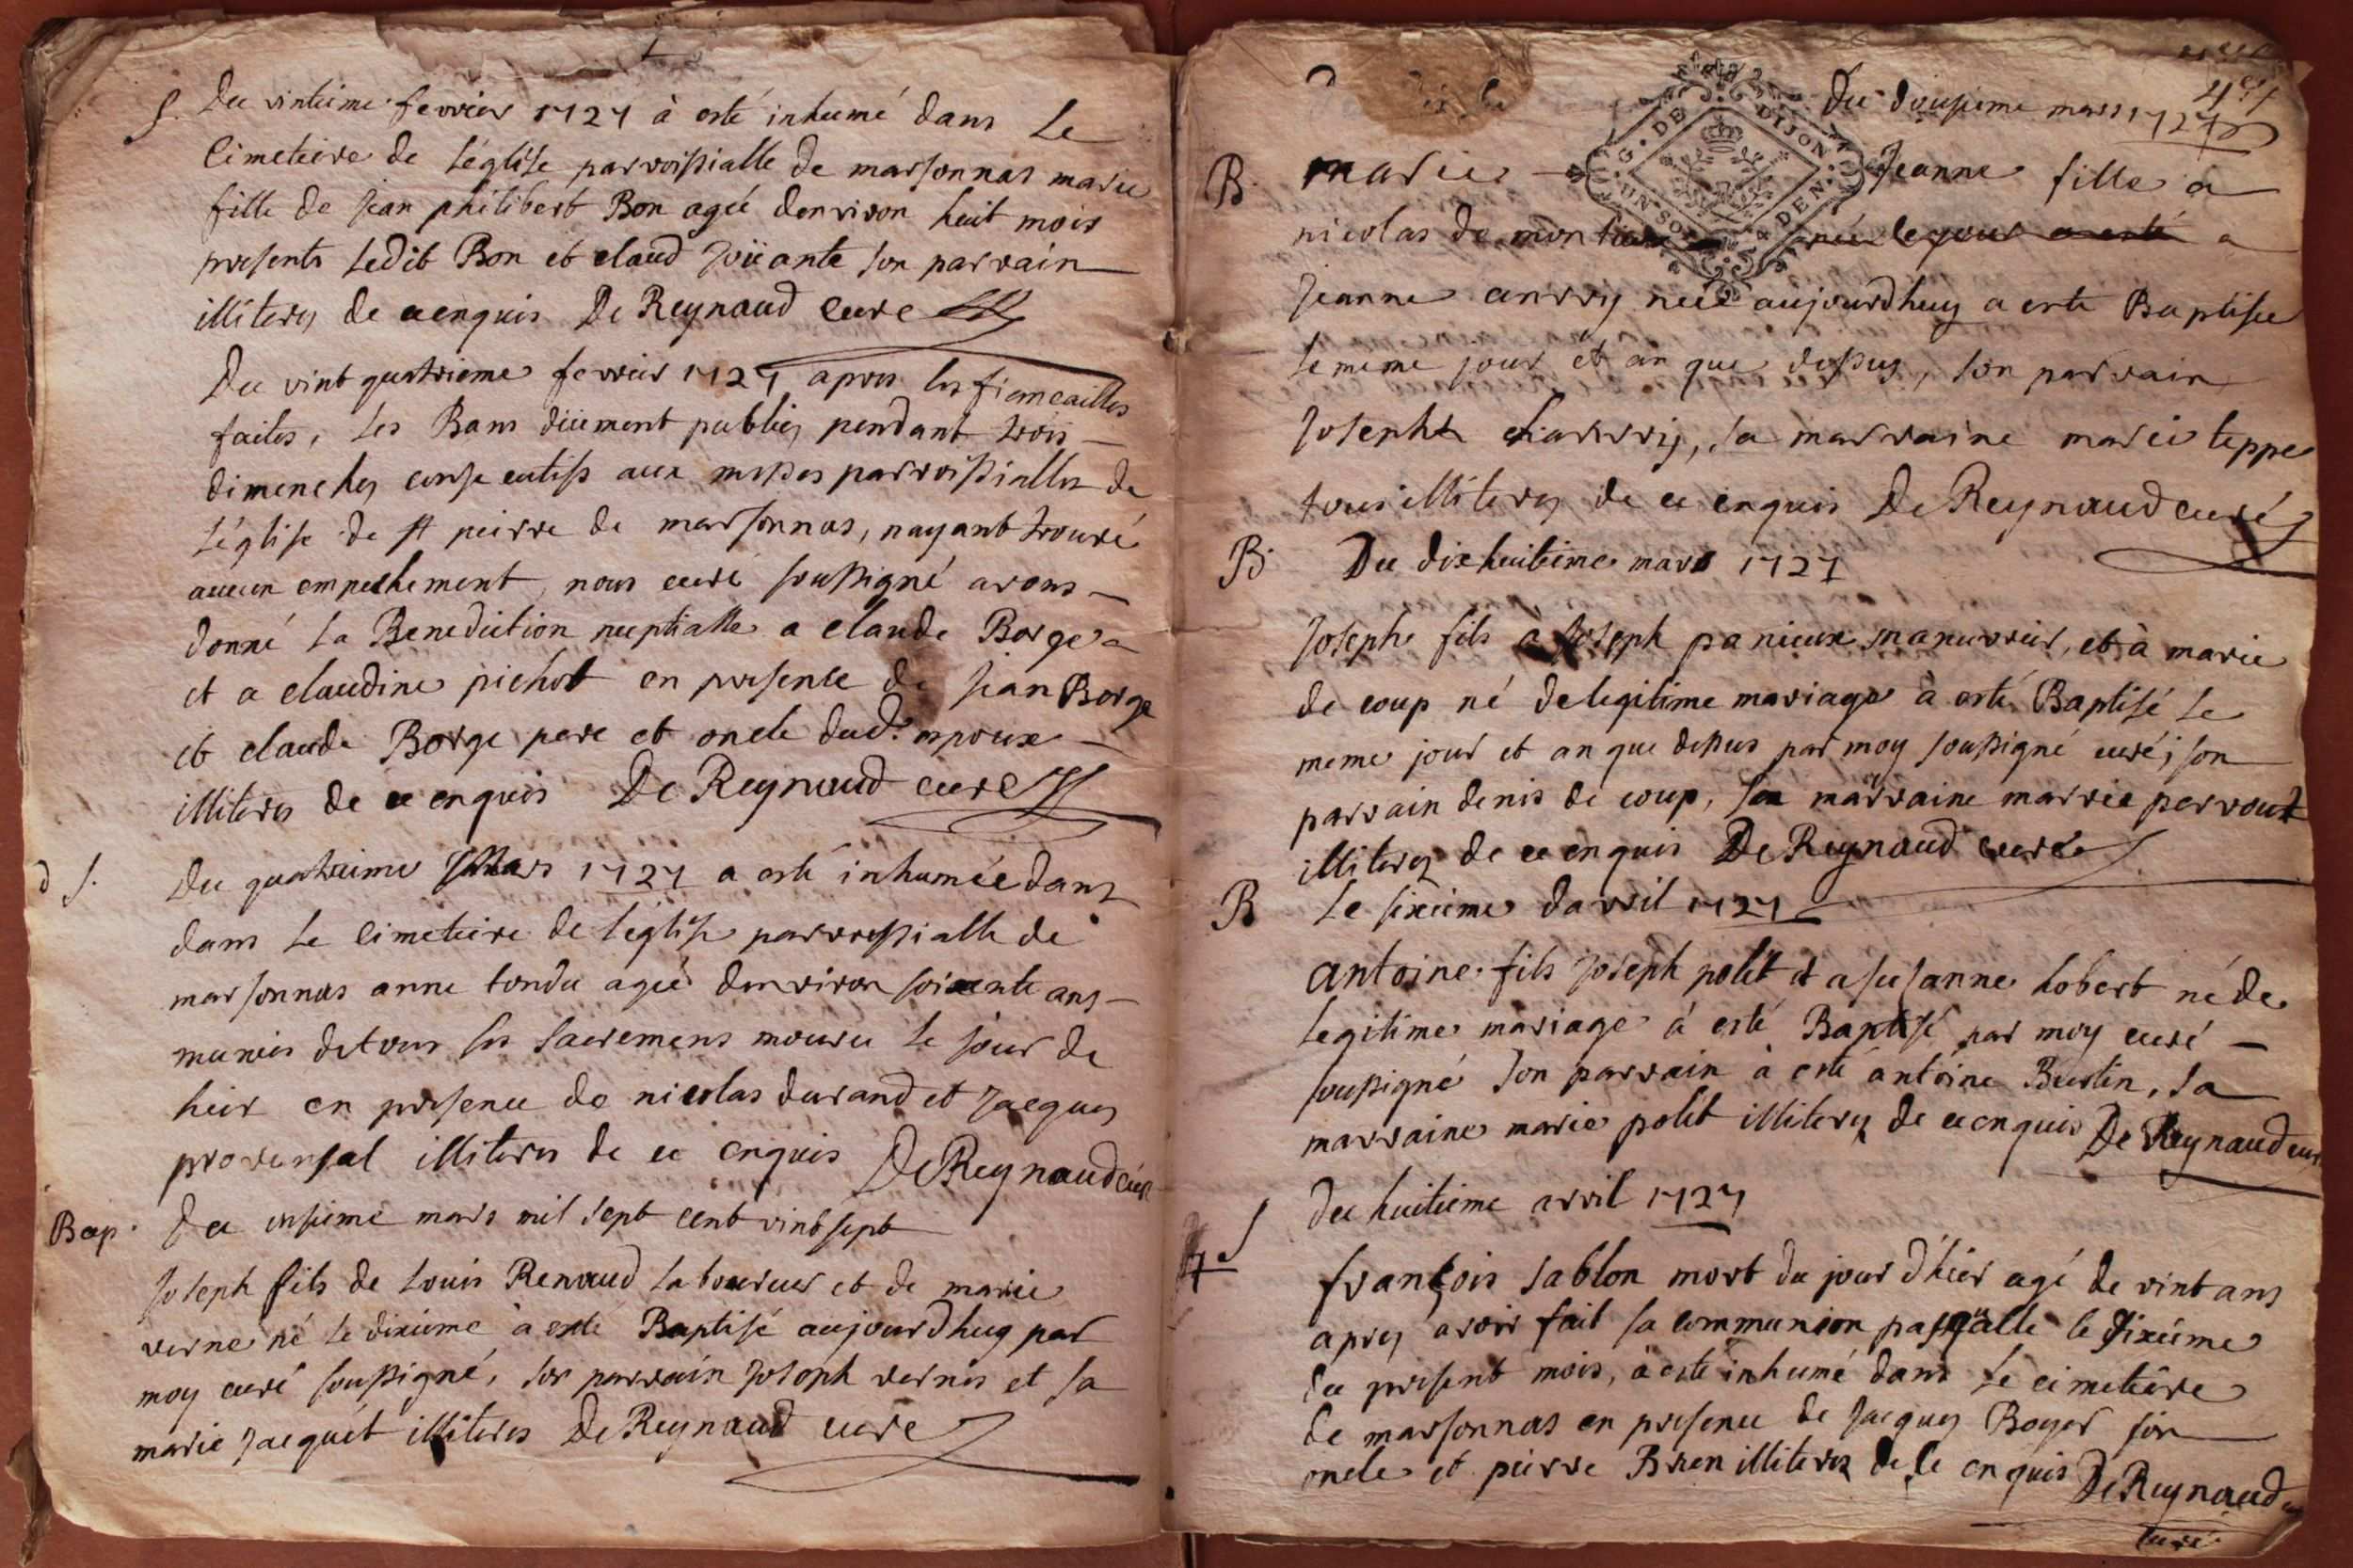 S. Du vintiéme fevrier 1727 à esté inhumé dans le
Cimeteire de l'église parroissialle de marsonnas marie
fille de Jean philibert Bon ageé denviron huit mois
presents ledit Bon et claud Joüante son parrain
illiteres de ce enquis De Reynaud curé
Du vint quatrieme fevrier 1727 apres les fiancailles
faites, les Bans düement publiés pendant trois
dimenches consecutifs aux messes parroissialles de
l'église de st peirre de marsonnas, nayant trouvé
aucun empechement, nous curé soussigné avons
donné la Benediction nuptialle a claude Borge
et a claudine pichot en presence de Jean Borge
et claude Borge pere et oncle dud. espoux
illiteres de ce enquis De Reynaud curé
d S. Du quatrieme Mars 1727 a esté inhumée dans
dans le Cimeteire de l'église parroissialle de
marsonnas anne tondu ageé denviron soixente ans
munies de tous ses sacremens mouru le jour de
heir en presence de nicolas durand et Jacques
provensal illiteres de ce enquis De Reynaud curé
Bap. Du onsieme mars mil sept cent vint sept
Joseph fils de Louis Renaud laboureur et de marie
verne né le dixieme à esté Baptisé aujourdhuy par
moy curé soussigné, son parrain Joseph vernis et sa
marie Jacquet illiteres De Reynaud curé
G. DE DIJON
UN SOL 4 DEN.
Du dousieme mars 1727
B. marie Jeanne fille a
nicolas de né le jour a esté a
Jeanne anrry neé aujourdhuy a esté Baptiseé
le meme jour et an que dessus, son parrain
Joseph charrry, sa marraine marie teppe
tous illiteres de ce enquis De Reynaud curé
B. Du dixhuitieme mars 1727
Joseph fils à Joseph panieux manuvrier, et à marie
de coup né de legitime mariage à esté Baptisé le
meme jour et an que dessus par moy soussigné curé; son
parrain denis de coup, sa marraine marrie perrout
illiteres de ce enquis De Reynaud curé
B Le sixieme davril 1727
antoine fils Joseph polet et a susanne hobert né de
legitime mariage à esté Baptisé par moy curé
soussigné son parrain à esté antoine Burtin, sa
marraine marie polet illiteres de ce enquis De Reynaud curé
S Du huitieme avril 1727
françois sablon mort du jour d'hier agé de vint ans
apres avoir fait sa communion pasqualle le sixieme
du present mois, à esté inhumé dans le cimetiere
de marsonnas en presence de Jacques Boyer son
oncle et peirre Bren illiteres de ce enquis De Reynaud
curé